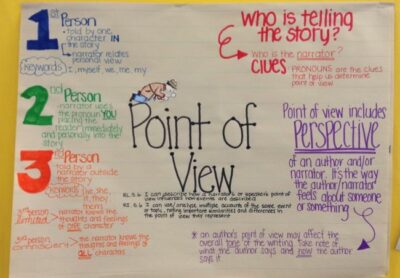 1st Person
- told by one
character IN
the story
- narrator relates
personal view
Keywords
I, myself, we, me, my
2nd Person
- narrator uses
the pronoun YOU
placing the
reader immediately
and personally into the story
3rd Person
- told by a
narrator outside
the story
Keywords
he, she,
it, they,
them
3rd person
limited
- narrator knows the
thoughts and feelings
of ONE character
3rd person
omniscient
- the narrator knows the
thoughts and feelings of
ALL characters
Point of
View
RL 5.6 I can describe how a narrator's or speaker's point of
view influences how events are described
RI 5.6 I can
analyze multiple accounts of the same event
or topic, noting important similarities and differences in
the point of view they represent
Who is telling
the story?
Who is the narrator?
CLUES
PRONOUNS are the clues
that help us determine
point of view
Point of view includes
PERSPECTIVE
of an author and/or
narrator. It's the way
the author/narrator
feels about someone
or something
* an author's point of view may affect the
overall tone of the writing. Take note of
what the author says and how the author
says it.